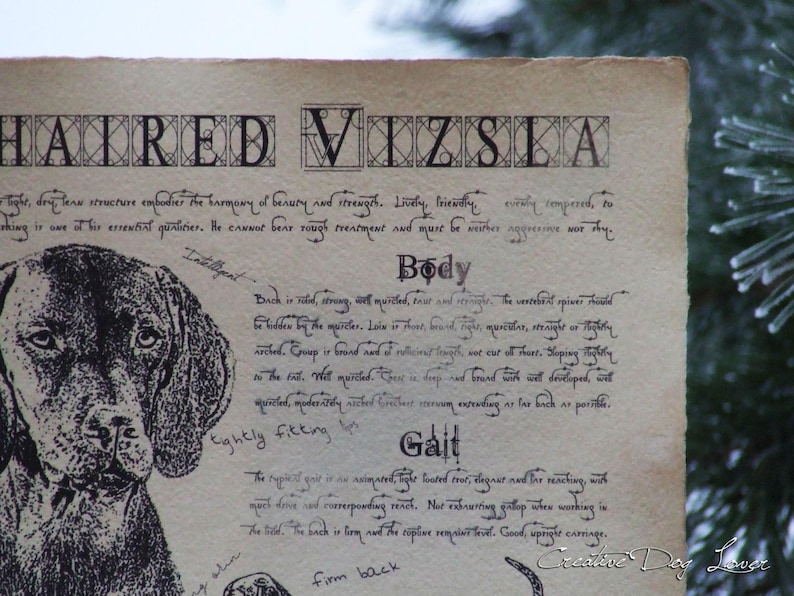 HAIRED VIZSLA
light, dry, lean structure embodies the harmony of beauty and strength. Lively, friendly, evenly tempered, to
is one of his essential qualities. He cannot bear rough treatment and must be neither aggressive nor shy.
Intelligent
Body
Back is solid, strong, well muscled, taut and straight. The vertebral spines should
be hidden by the muscles. Loin is short, broad, tight, muscular, straight or slightly
arched. Croup is broad and of sufficient length, not cut off short. Sloping slightly
to the tail. Well muscled. Chest is deep and broad with well developed, well
muscled, moderately arched forechest sternum extending as far back as possible.
tightly fitting lips
Gait
The typical gait is an animated, light footed trot, elegant and far reaching, with
much drive and corresponding reach. Not exhausting gallop when working in
the field. The back is firm and the topline remains level. Good, upright carriage.
firm back
Creative Dog Lover